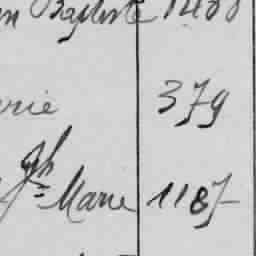 Baptiste 1488
rie 379
Jph
Marie 1187